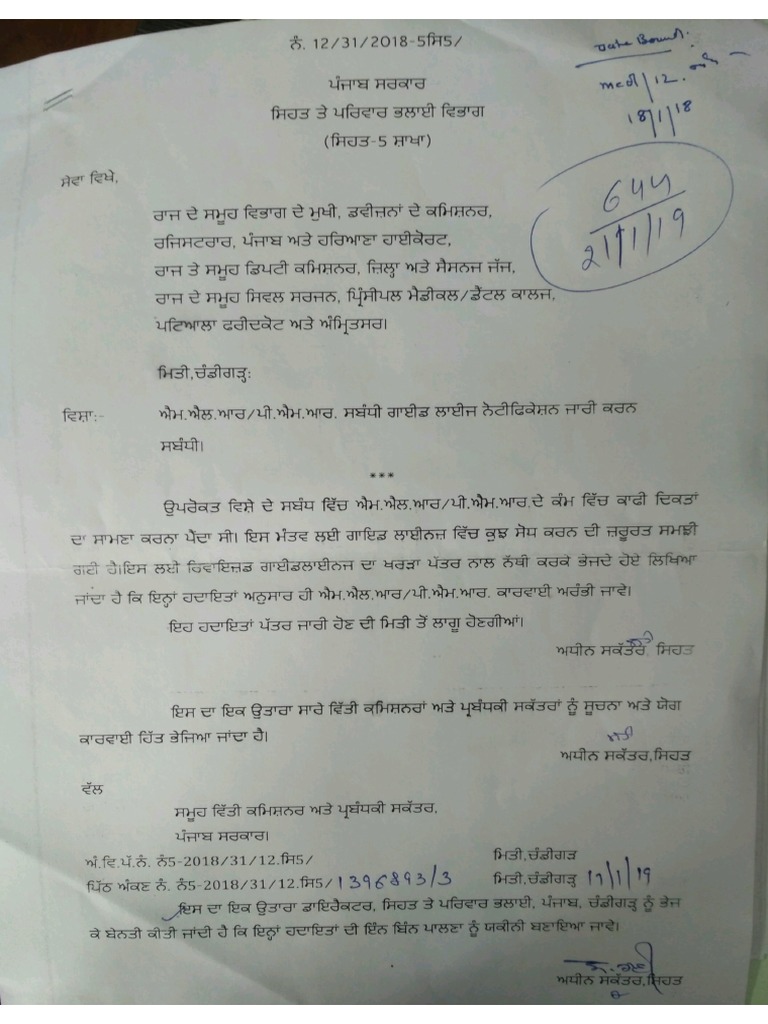 ਨੰ. 12/31/2018-5ਸਿ5/
Date Bound.
med/12.
18/1/18
ਪੰਜਾਬ ਸਰਕਾਰ
ਸਿਹਤ ਤੇ ਪਰਿਵਾਰ ਭਲਾਈ ਵਿਭਾਗ
(ਸਿਹਤ-5 ਸ਼ਾਖਾ)
ਸੇਵਾ ਵਿਖੇ,
21/1/19
ਰਾਜ ਦੇ ਸਮੂਹ ਵਿਭਾਗ ਦੇ ਮੁਖੀ, ਡਵੀਜ਼ਨਾਂ ਦੇ ਕਮਿਸ਼ਨਰ,
ਰਜਿਸਟਰਾਰ, ਪੰਜਾਬ ਅਤੇ ਹਰਿਆਣਾ ਹਾਈਕੋਰਟ,
ਰਾਜ ਤੇ ਸਮੂਹ ਡਿਪਟੀ ਕਮਿਸ਼ਨਰ, ਜ਼ਿਲ੍ਹਾ ਅਤੇ ਸੈਸਨਜ ਜੱਜ,
ਰਾਜ ਦੇ ਸਮੂਹ ਸਿਵਲ ਸਰਜਨ, ਪ੍ਰਿੰਸੀਪਲ ਮੈਡੀਕਲ/ਡੈਂਟਲ ਕਾਲਜ,
ਪਟਿਆਲਾ ਫਰੀਦਕੋਟ ਅਤੇ ਅੰਮ੍ਰਿਤਸਰ।
ਮਿਤੀ,ਚੰਡੀਗੜ੍ਹ:
ਵਿਸ਼ਾ:- ਐਮ.ਐਲ.ਆਰ/ਪੀ.ਐਮ.ਆਰ. ਸਬੰਧੀ ਗਾਈਡ ਲਾਈਜ ਨੋਟੀਫਿਕੇਸ਼ਨ ਜਾਰੀ ਕਰਨ
ਸਬੰਧੀ।
***
ਉਪਰੋਕਤ ਵਿਸ਼ੇ ਦੇ ਸਬੰਧ ਵਿੱਚ ਐਮ.ਐਲ.ਆਰ/ਪੀ.ਐਮ.ਆਰ.ਦੇ ਕੰਮ ਵਿੱਚ ਕਾਫੀ ਦਿਕਤਾਂ
ਦਾ ਸਾਮਣਾ ਕਰਨਾ ਪੈਂਦਾ ਸੀ। ਇਸ ਮੰਤਵ ਲਈ ਗਾਇਡ ਲਾਈਨਜ਼ ਵਿੱਚ ਕੁਝ ਸੋਧ ਕਰਨ ਦੀ ਜ਼ਰੂਰਤ ਸਮਝੀ
ਗਈ ਹੈ।ਇਸ ਲਈ ਰਿਵਾਇਜ਼ਡ ਗਾਈਡਲਾਈਨਜ ਦਾ ਖਰੜਾ ਪੱਤਰ ਨਾਲ ਨੱਥੀ ਕਰਕੇ ਭੇਜਦੇ ਹੋਏ ਲਿਖਿਆ
ਜਾਂਦਾ ਹੈ ਕਿ ਇਨ੍ਹਾਂ ਹਦਾਇਤਾਂ ਅਨੁਸਾਰ ਹੀ ਐਮ.ਐਲ.ਆਰ/ਪੀ.ਐਮ.ਆਰ. ਕਾਰਵਾਈ ਅਰੰਭੀ ਜਾਵੇ।
ਇਹ ਹਦਾਇਤਾਂ ਪੱਤਰ ਜਾਰੀ ਹੋਣ ਦੀ ਮਿਤੀ ਤੋਂ ਲਾਗੂ ਹੋਣਗੀਆਂ।
ਅਧੀਨ ਸਕੱਤਰ, ਸਿਹਤ
ਇਸ ਦਾ ਇਕ ਉਤਾਰਾ ਸਾਰੇ ਵਿੱਤੀ ਕਮਿਸ਼ਨਰਾਂ ਅਤੇ ਪ੍ਰਬੰਧਕੀ ਸਕੱਤਰਾਂ ਨੂੰ ਸੂਚਨਾ ਅਤੇ ਯੋਗ
ਕਾਰਵਾਈ ਹਿੱਤ ਭੇਜਿਆ ਜਾਂਦਾ ਹੈ।
ਅਧੀਨ ਸਕੱਤਰ,ਸਿਹਤ
ਵੱਲ
ਸਮੂਹ ਵਿੱਤੀ ਕਮਿਸ਼ਨਰ ਅਤੇ ਪ੍ਰਬੰਧਕੀ ਸਕੱਤਰ,
ਪੰਜਾਬ ਸਰਕਾਰ।
ਅੰ.ਵਿ.ਪੱ.ਨੰ. ਨੰ5-2018/31/12.ਸਿ5/ ਮਿਤੀ,ਚੰਡੀਗੜ
ਪਿੱਠ ਅੰਕਣ ਨੰ. ਨੰ5-2018/31/12.ਸਿ5/1396893/3 ਮਿਤੀ,ਚੰਡੀਗੜ੍ਹ 17/1/19
ਇਸ ਦਾ ਇਕ ਉਤਾਰਾ ਡਾਇਰੈਕਟਰ, ਸਿਹਤ ਤੇ ਪਰਿਵਾਰ ਭਲਾਈ, ਪੰਜਾਬ, ਚੰਡੀਗੜ੍ਹ ਨੂੰ ਭੇਜ
ਕੇ ਬੇਨਤੀ ਕੀਤੀ ਜਾਂਦੀ ਹੈ ਕਿ ਇਨ੍ਹਾਂ ਹਦਾਇਤਾਂ ਦੀ ਇੰਨ ਬਿੰਨ ਪਾਲਣਾ ਨੂੰ ਯਕੀਨੀ ਬਣਾਇਆ ਜਾਵੇ।
ਅਧੀਨ ਸਕੱਤਰ,ਸਿਹਤ